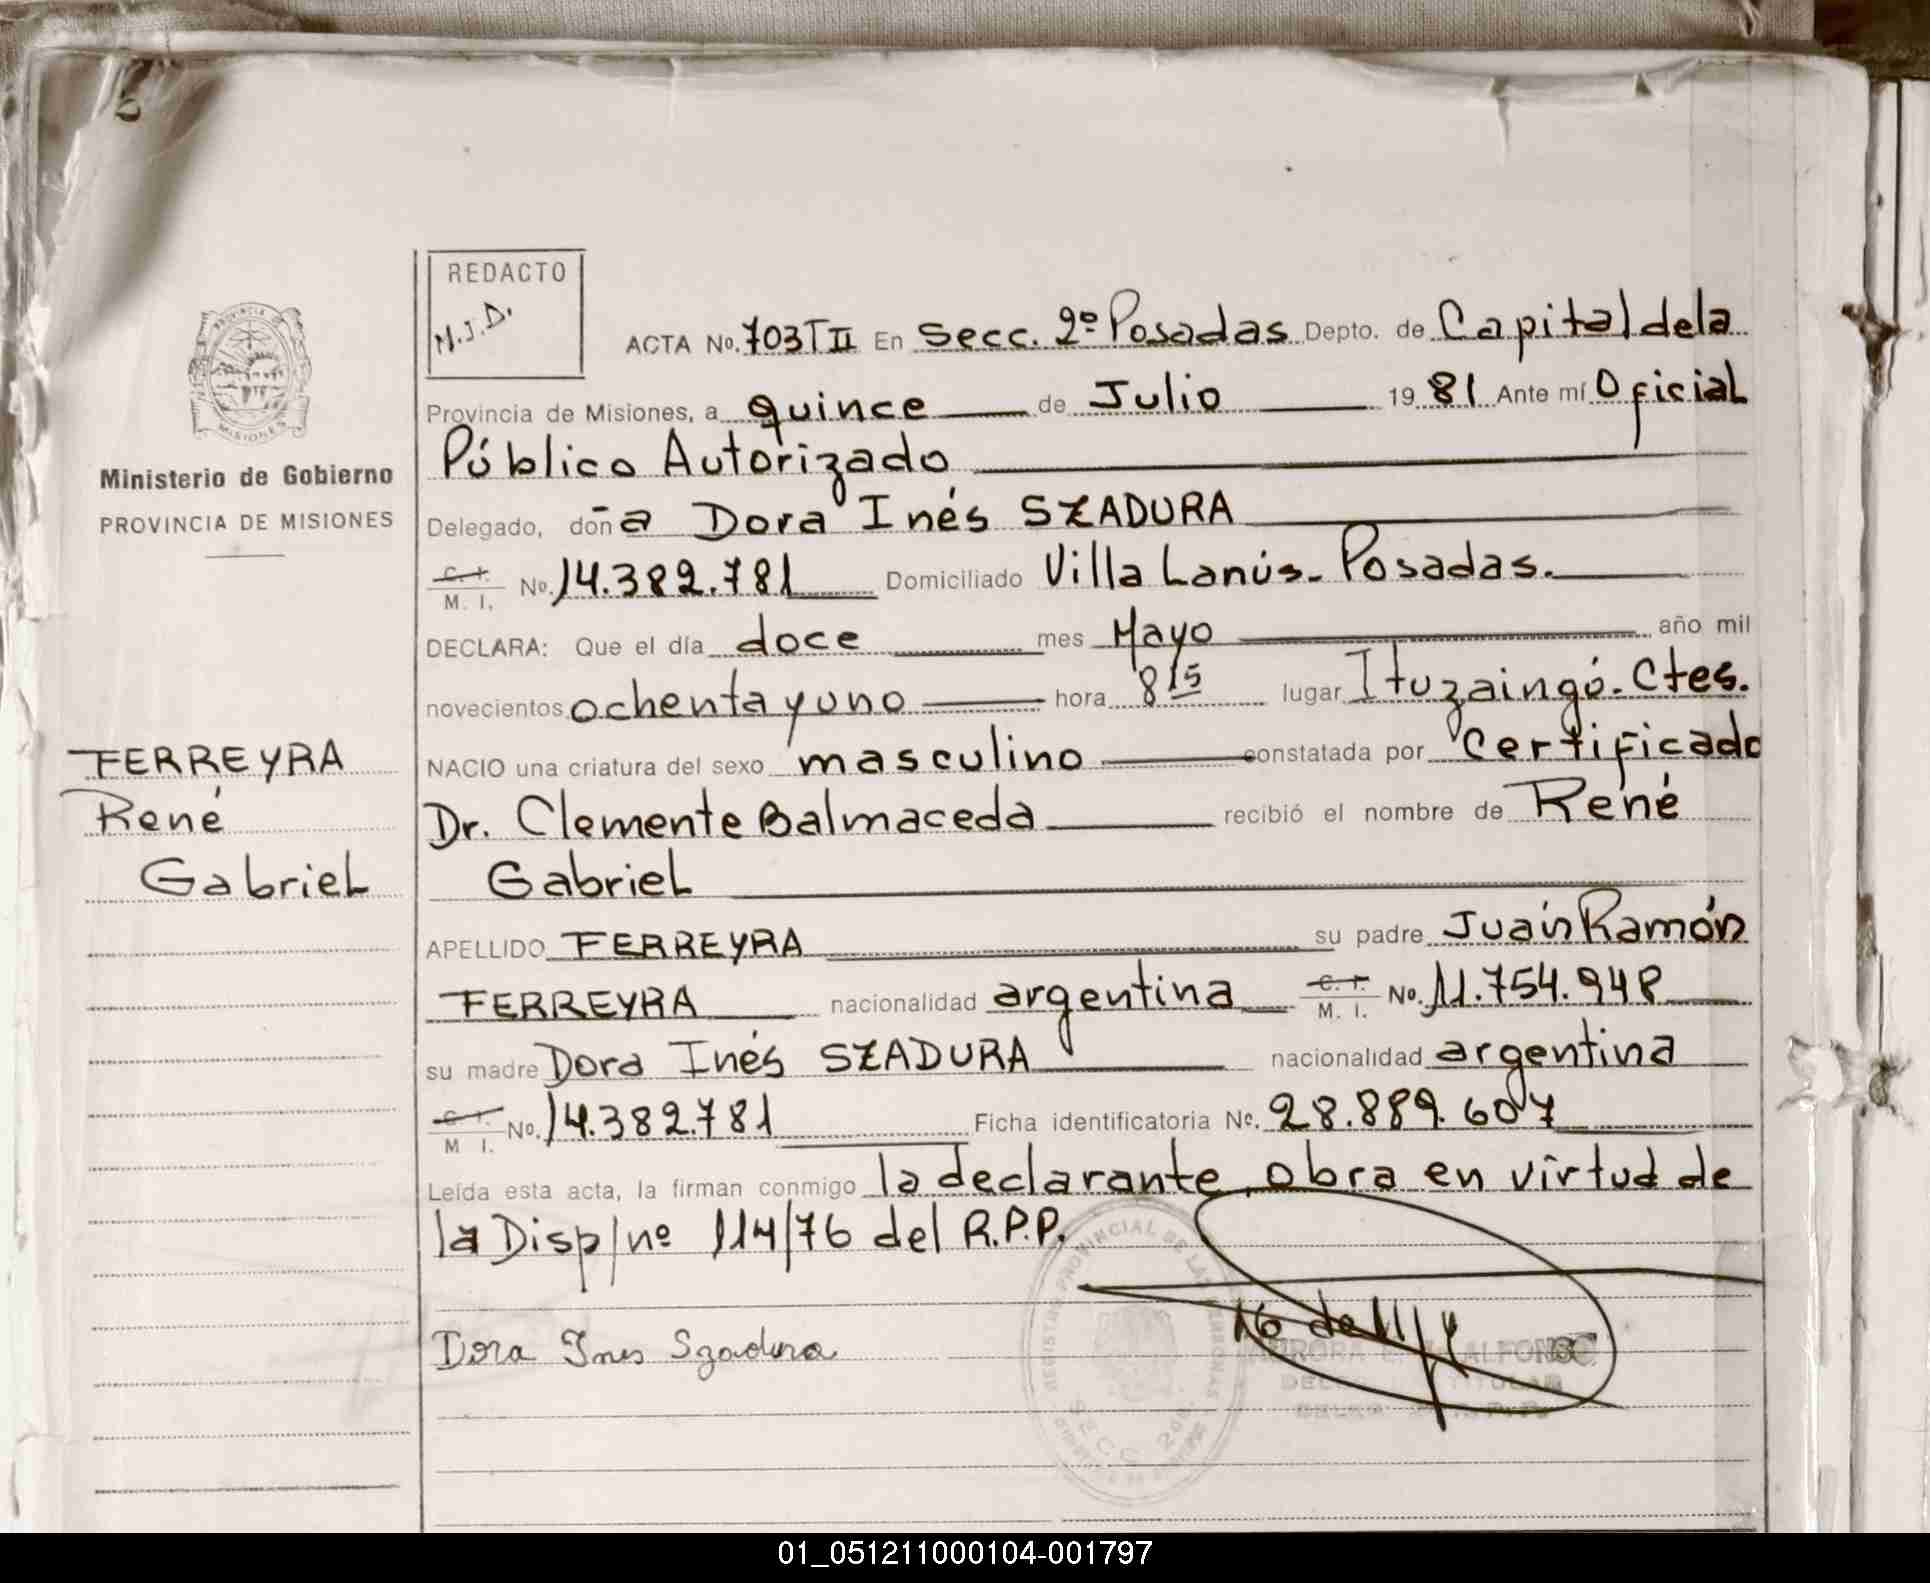 REDACTO
M.J.D.
ACTA No. 703 T II En Secc. 2º Posadas Depto. de Capital de la
Provincia de Misiones, a quince de Julio 1981 Ante mí Oficial
Público Autorizado
Ministerio de Gobierno
PROVINCIA DE MISIONES
Delegado, don a Dora Inés SZADURA
C. I. M. I. No. 14.382.781 Domiciliado Villa Lanús - Posadas.
DECLARA: Que el día doce mes Mayo año mil
novecientos ochenta y uno hora 8 15 lugar Ituzaingó - Ctes.
FERREYRA
René
Gabriel
NACIO una criatura del sexo masculino constatada por Certificado
Dr. Clemente Balmaceda recibió el nombre de René
Gabriel
APELLIDO FERREYRA su padre Juan Ramón
FERREYRA nacionalidad argentina C. I. M. I. No. 11.754.948
su madre Dora Inés SZADURA nacionalidad argentina
C. I. M I. No. 14.382.781 Ficha identificatoria No. 28.889.607
Leída esta acta, la firman conmigo la declarante, obra en virtud de
la Disp/nº 114/76 del R.P.P.
Dora Ines Szadura
REGISTRO PROVINCIAL DE LAS PERSONAS
SECC. 2da.
ALFONSO
TITULAR
01_051211000104-001797